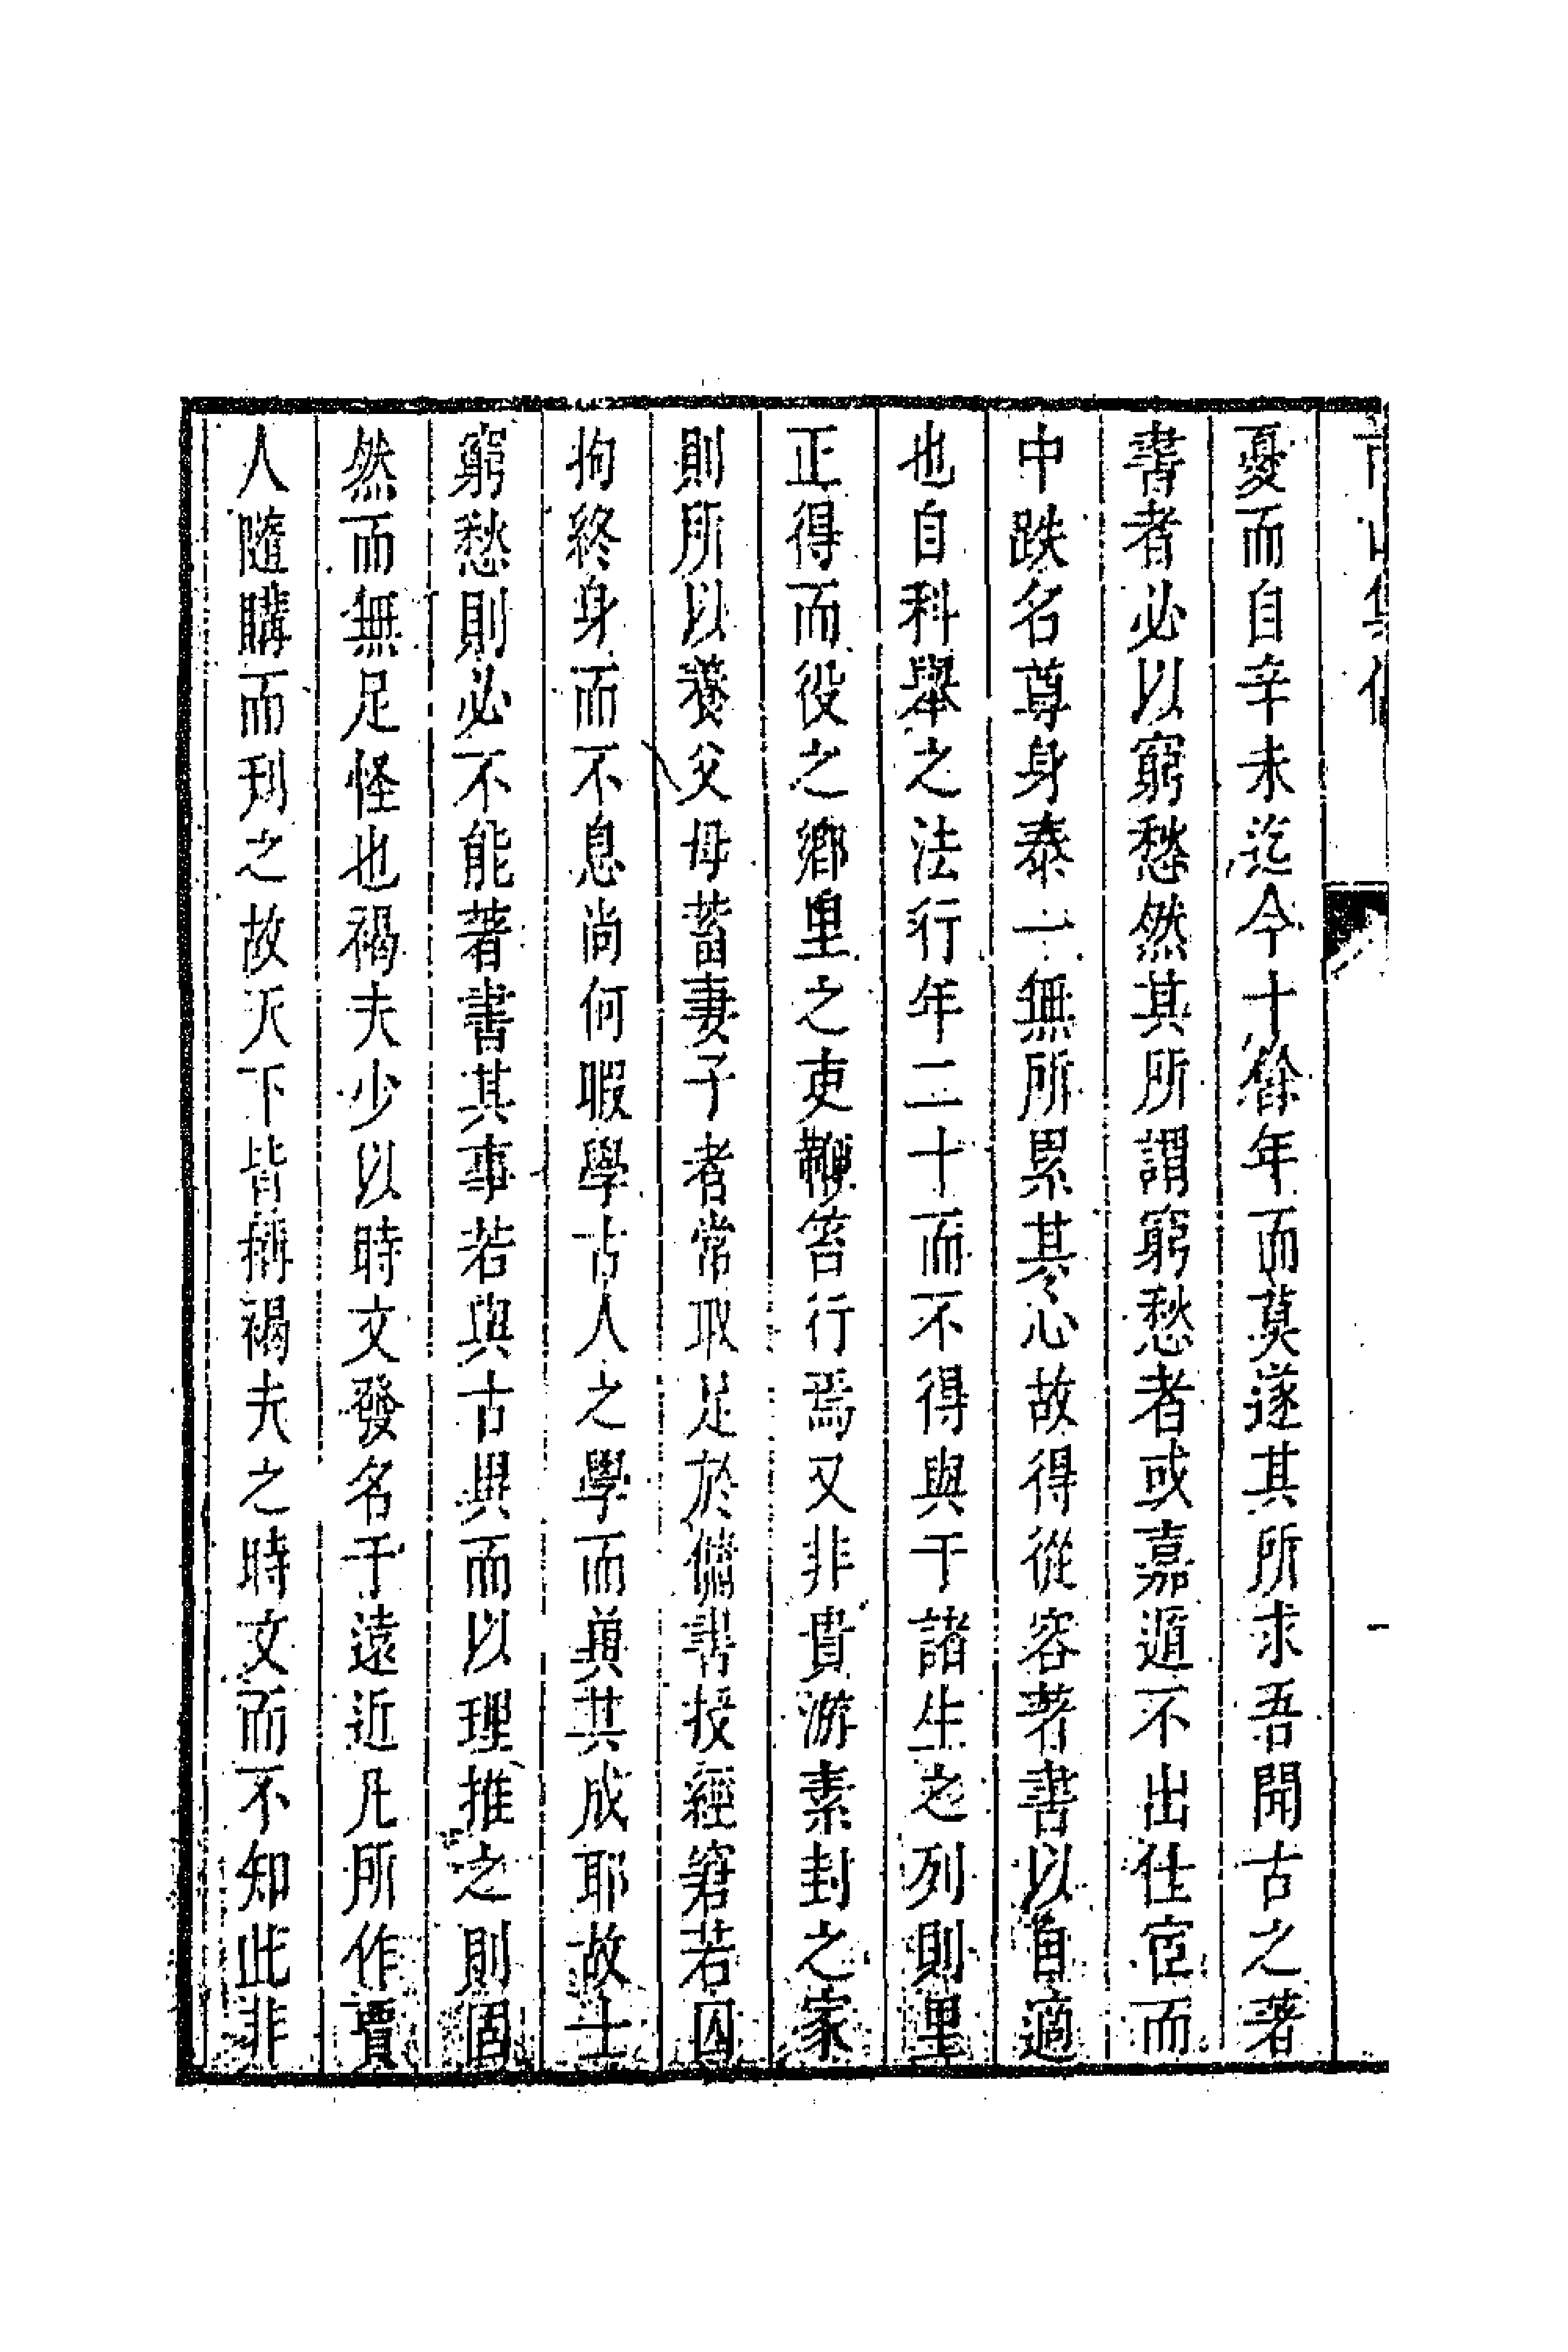 憂而自辛未迄今十餘年而莫遂其所求吾聞古之著
書者必以窮愁然其所謂窮愁者或嘉遁不出仕宦而
中跌名尊身泰一無所累其心故得從容著書以自適
也自科舉之法行年二十而不得與于諸生之列則里
正得而役之鄉里之吏鞭笞行焉又非貴游素封之家
則所以養父母蓄妻子者常取足於傭書授經窘若囚
拘終身而不息尚何暇學古人之學而冀其成耶故士
窮愁則必不能著書其事若與古異而以理推之則固
然而無足怪也褐夫少以時文發名于遠近凡所作賈
人隨購而刋之故天下皆稱褐夫之時文而不知此非